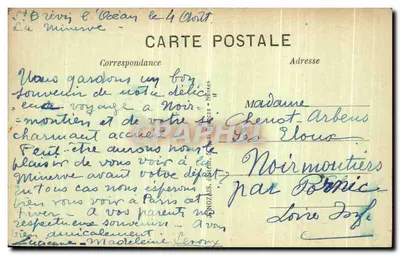 St Brévin l'Océan le 4 Août
La Minerve
CARTE POSTALE
Correspondance
Adresse
Nous gardons un bon
souvenir de notre délici=
eux voyage à Noir=
=moutiers et de votre
charmant accueil
Peut-être aurons nous le
plaisir de vous voir à la
Minerve avant votre départ
en tous cas nous espérons
bien vous voir à Paris cet
hiver - à vos parents nos
respectueux souvenirs - à vous
bien amicalement.
Suzanne - Madeleine Leroux
Madame
Chenot-Arbens
des Eloux
Noirmoutiers
par Pornic
Loire Infre